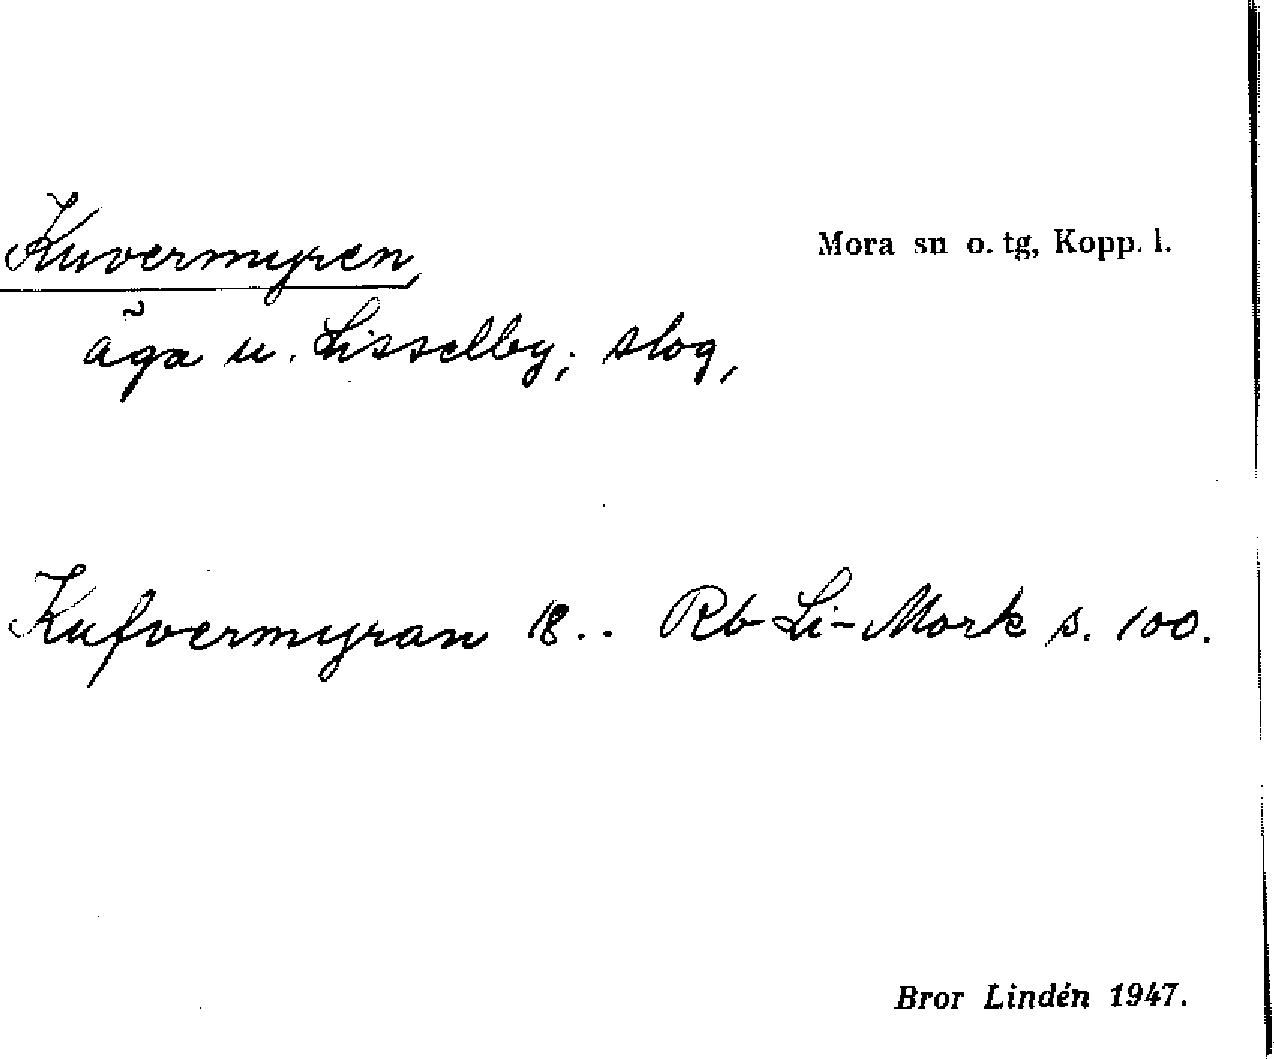 Kuvermyren, Mora sn o. tg, Kopp. l.
äga u. Lisselby; slog,
Kufvermyran 18.. Rb Li-Mork s. 100.
Bror Lindén 1947.